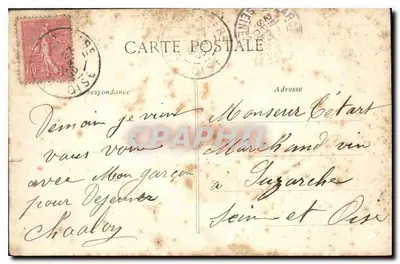 CARTE POSTALE
Correspondance
Adresse
Demain je vien
vous voir
avec Mon garçon
pour Dejeuner
Monsieur Tétart
Marchand vin
à Luzarches
Sein et Oise